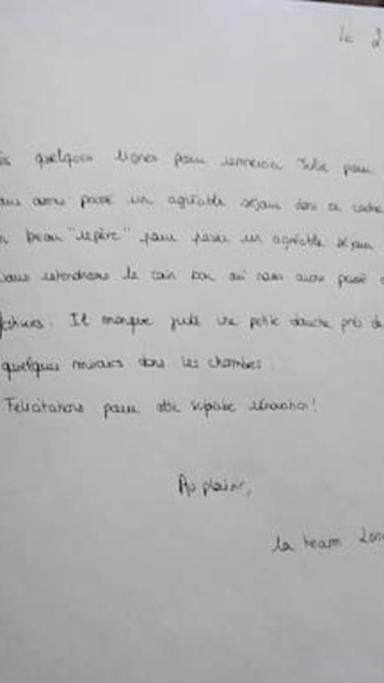 le 2
quelques lignes pour remercier Julie pour
avons passé un agréable séjour dans ce cadre
beau "repère" pour passer un agréable séjour
nous retiendrons le coin bar où nous avons passé
Il manque juste une petite douche près de
quelques miroirs dans les chambres.
Félicitations pour votre superbe rénovation!
Au plaisir,
La team